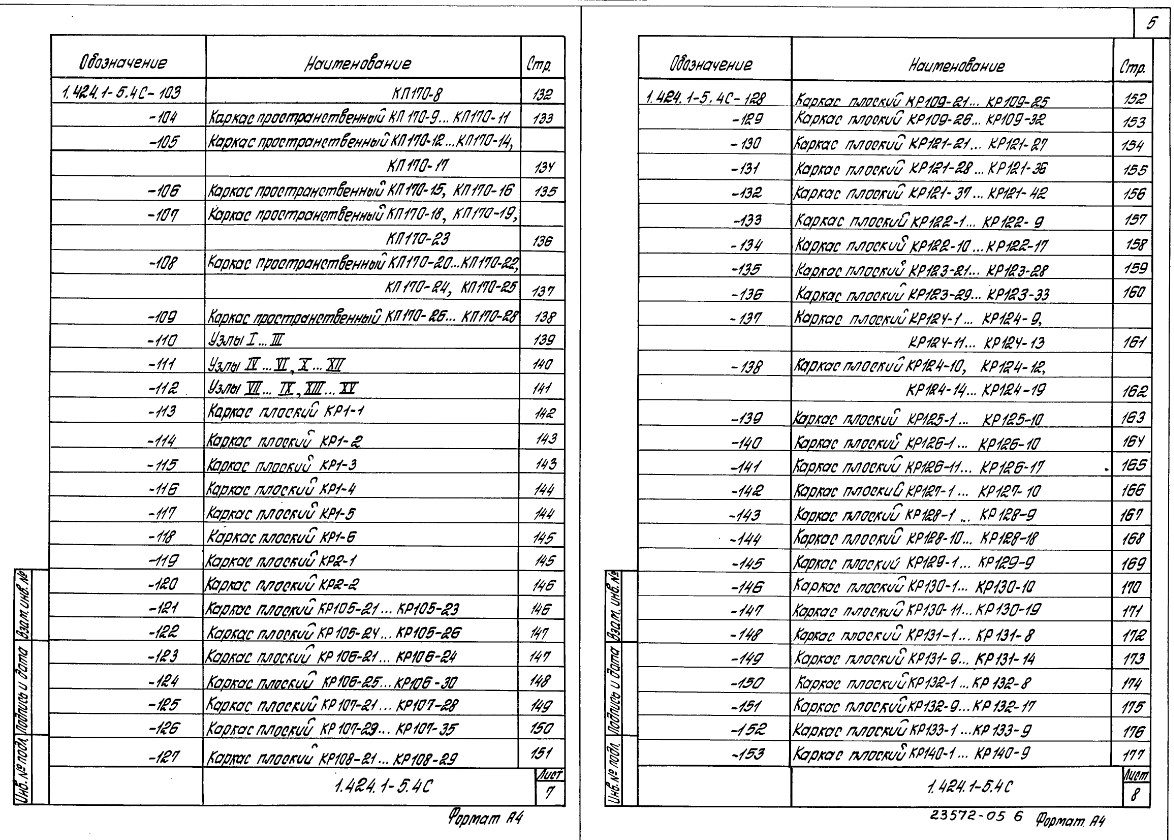 5
Обозначение Наименование Стр.
1.424.1-5.4С-103 КП170-8 132
-104 Каркас пространственный КП170-9...КП170-11 133
-105 Каркас пространственный КП170-12...КП170-14,
КП170-17 134
-106 Каркас пространственный КП170-15, КП170-16 135
-107 Каркас пространственный КП170-18, КП170-19,
КП170-23 136
-108 Каркас пространственный КП170-20...КП170-22,
КП170-24, КП170-25 137
-109 Каркас пространственный КП170-26...КП170-28 138
-110 Узлы I...III 139
-111 Узлы IV...VI, X...XII 140
-112 Узлы VII...IX, XIII...XV 141
-113 Каркас плоский КР1-1 142
-114 Каркас плоский КР1-2 143
-115 Каркас плоский КР1-3 143
-116 Каркас плоский КР1-4 144
-117 Каркас плоский КР1-5 144
-118 Каркас плоский КР1-6 145
-119 Каркас плоский КР2-1 145
-120 Каркас плоский КР2-2 146
-121 Каркас плоский КР105-21...КР105-23 146
-122 Каркас плоский КР105-24...КР105-26 147
-123 Каркас плоский КР106-21...КР106-24 147
-124 Каркас плоский КР106-25...КР106-30 148
-125 Каркас плоский КР107-21...КР107-28 149
-126 Каркас плоский КР107-29...КР107-35 150
-127 Каркас плоский КР108-21...КР108-29 151
1.424.1-5.4С Лист 7
Инв.№ подл. Подпись и дата Взам.инв.№
Формат А4
Обозначение Наименование Стр.
1.424.1-5.4С-128 Каркас плоский КР109-21...КР109-25 152
-129 Каркас плоский КР109-26...КР109-32 153
-130 Каркас плоский КР121-21...КР121-27 154
-131 Каркас плоский КР121-28...КР121-36 155
-132 Каркас плоский КР121-37...КР121-42 156
-133 Каркас плоский КР122-1...КР122-9 157
-134 Каркас плоский КР122-10...КР122-17 158
-135 Каркас плоский КР123-21...КР123-28 159
-136 Каркас плоский КР123-29...КР123-33 160
-137 Каркас плоский КР124-1...КР124-9,
КР124-11...КР124-13 161
-138 Каркас плоский КР124-10, КР124-12,
КР124-14...КР124-19 162
-139 Каркас плоский КР125-1...КР125-10 163
-140 Каркас плоский КР126-1...КР126-10 164
-141 Каркас плоский КР126-11...КР126-17 165
-142 Каркас плоский КР127-1...КР127-10 166
-143 Каркас плоский КР128-1...КР128-9 167
-144 Каркас плоский КР128-10...КР128-18 168
-145 Каркас плоский КР129-1...КР129-9 169
-146 Каркас плоский КР130-1...КР130-10 170
-147 Каркас плоский КР130-11...КР130-19 171
-148 Каркас плоский КР131-1...КР131-8 172
-149 Каркас плоский КР131-9...КР131-14 173
-150 Каркас плоский КР132-1...КР132-8 174
-151 Каркас плоский КР132-9...КР132-17 175
-152 Каркас плоский КР133-1...КР133-9 176
-153 Каркас плоский КР140-1...КР140-9 177
1.424.1-5.4С Лист 8
Инв.№ подл. Подпись и дата Взам.инв.№
23572-05 6 Формат А4